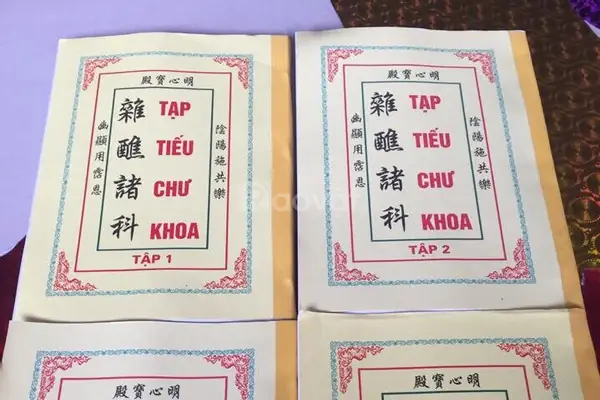 明心寶殿
陰陽施共樂
雜醮諸科
TẠP
TIẾU
CHƯ
KHOA
幽顯用霑恩
TẬP 1
明心寶殿
陰陽施共樂
雜醮諸科
TẠP
TIẾU
CHƯ
KHOA
幽顯用霑恩
TẬP 2
明心寶殿
明心寶殿